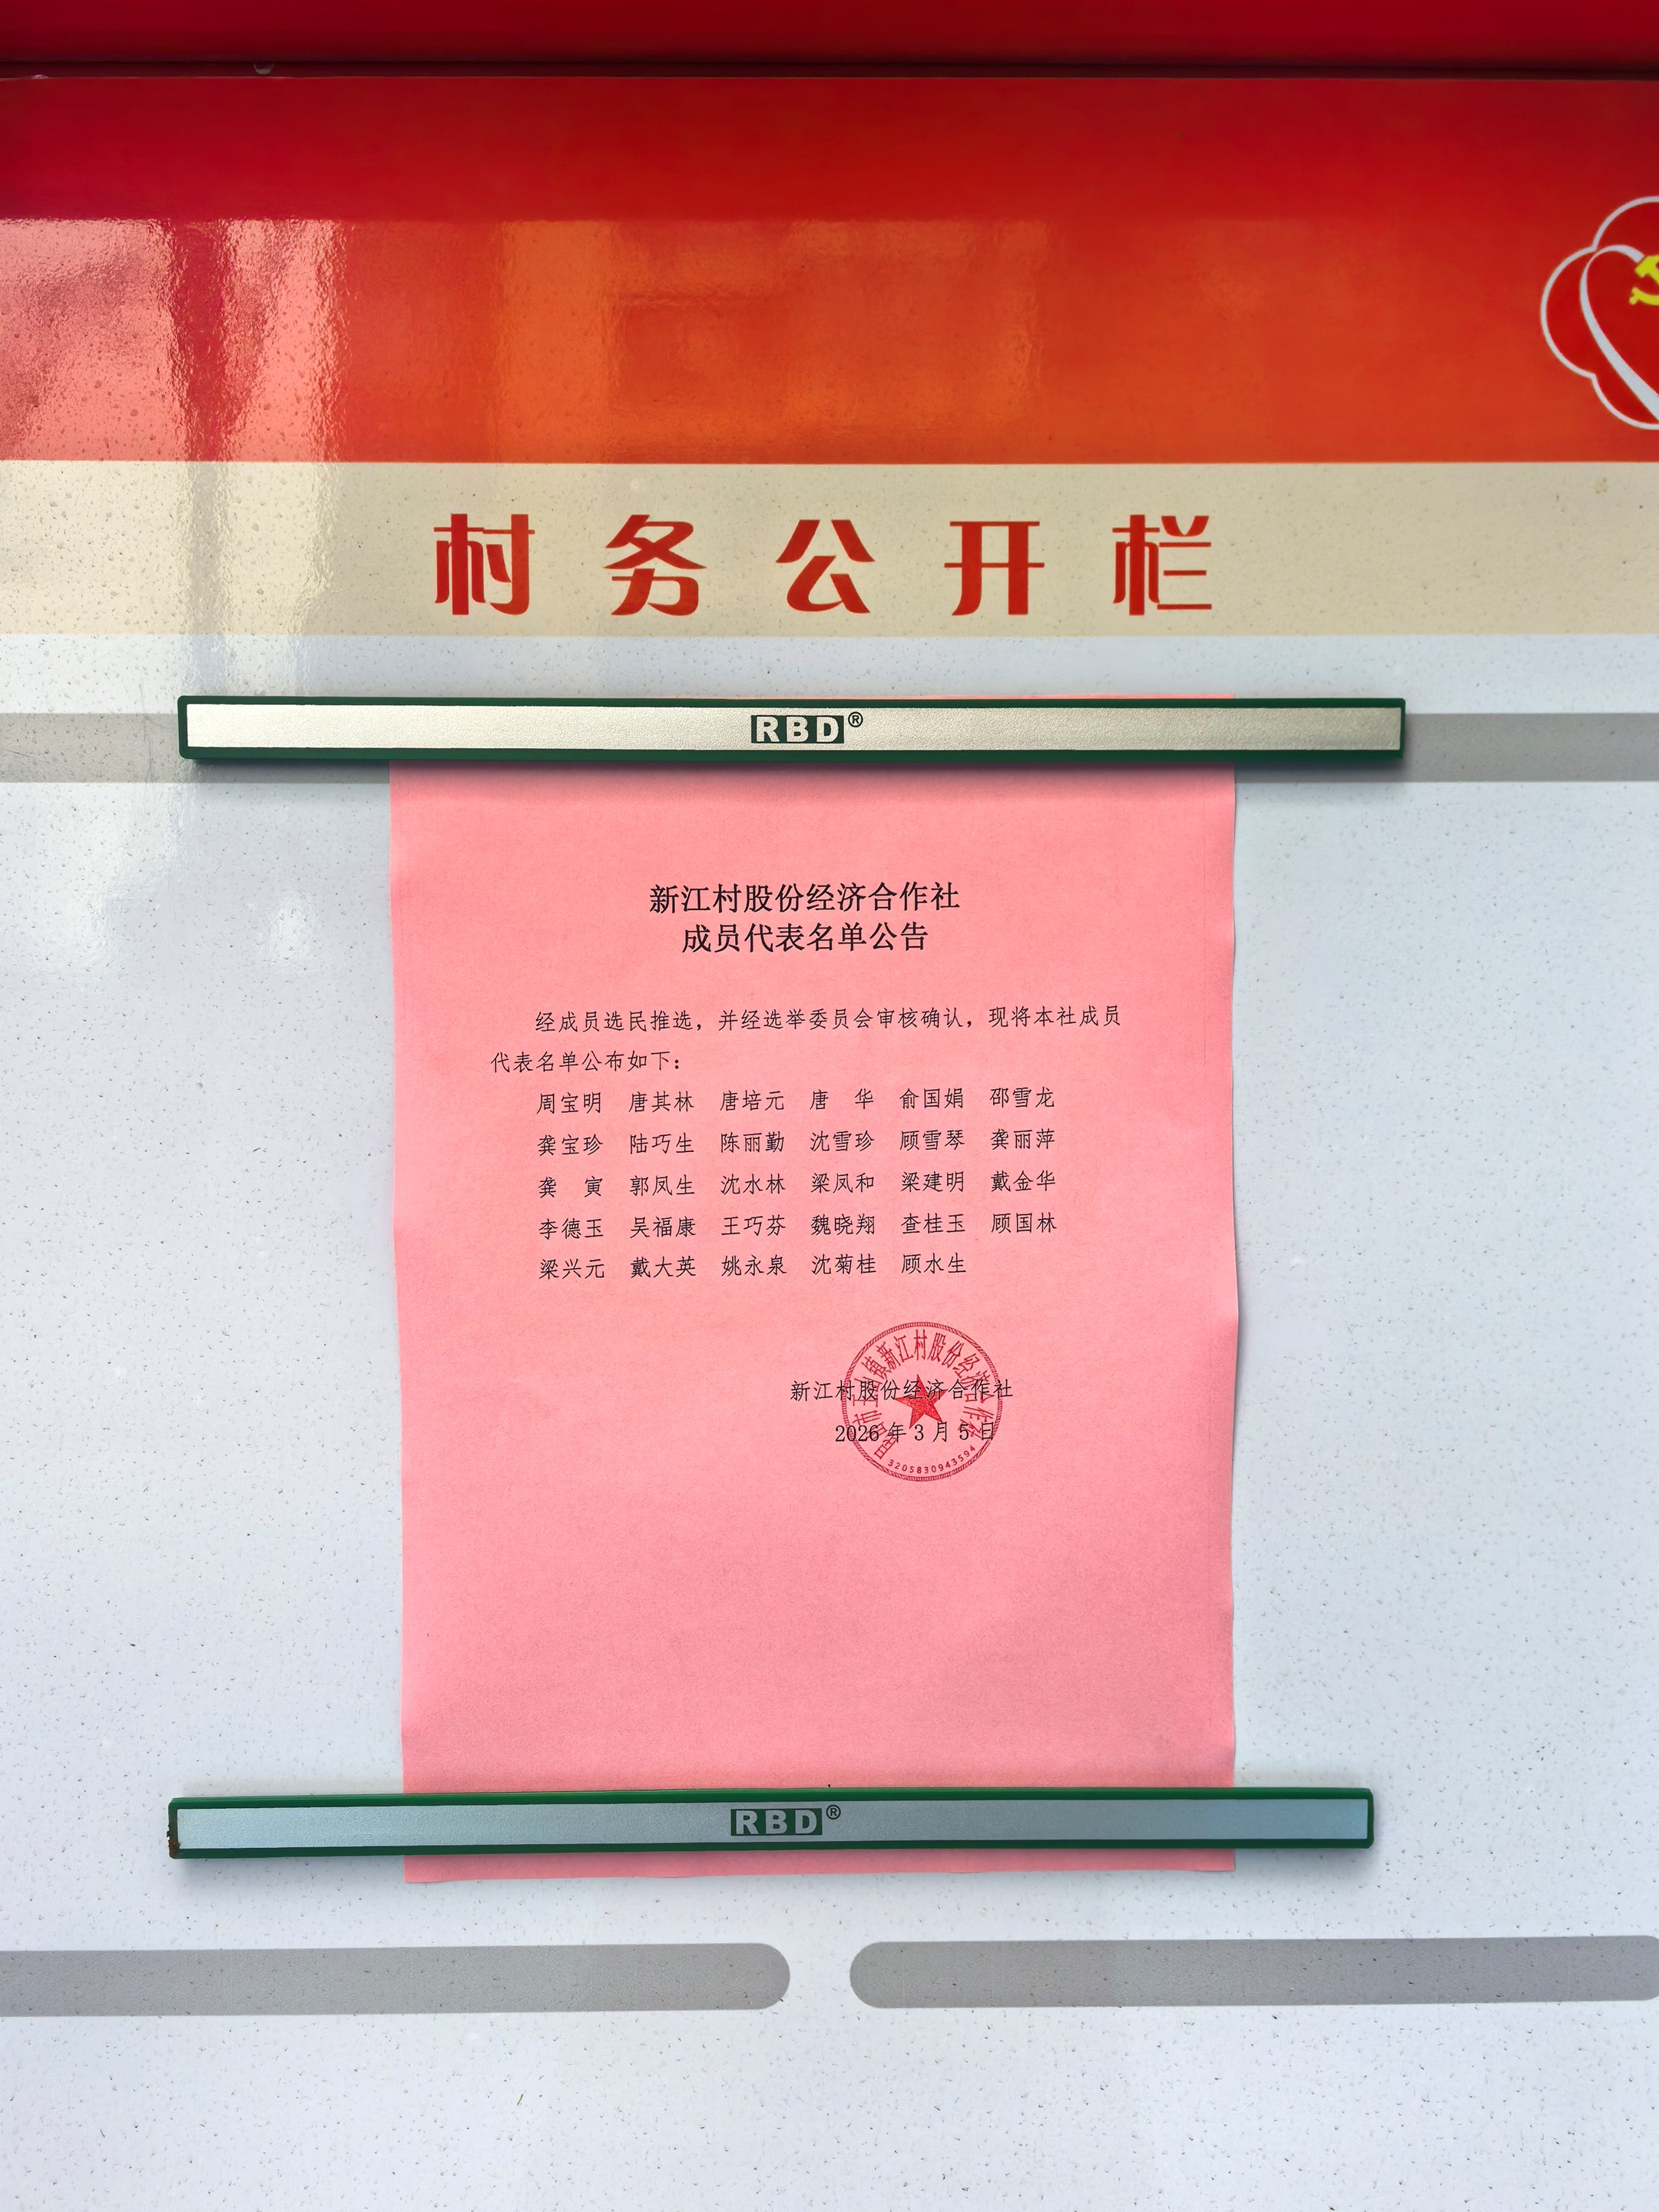 村务公开栏
RBD®
新江村股份经济合作社
成员代表名单公告
经成员选民推选，并经选举委员会审核确认，现将本社成员
代表名单公布如下：
周宝明 唐其林 唐培元 唐 华 俞国娟 邵雪龙
龚宝珍 陆巧生 陈丽勤 沈雪珍 顾雪琴 龚丽萍
龚 寅 郭凤生 沈水林 梁凤和 梁建明 戴金华
李德玉 吴福康 王巧芬 魏晓翔 查桂玉 顾国林
梁兴元 戴大英 姚永泉 沈菊桂 顾水生
新江村股份经济合作社
2026年3月5日
市玉山镇新江村股份经济合作社
3205830943594
RBD®